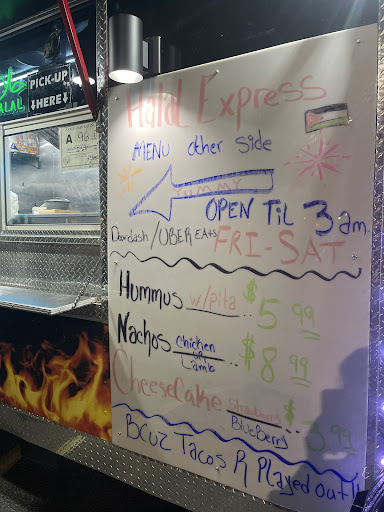 HALAL
PICK-UP
↓HERE↓
A 96
Halal Express
MENU other side
YUMMY
OPEN TiL 3am.
Doordash/UBER EATS FRI-SAT
Hummus w/pita .. $5.99
Nachos Chicken or Lamb ... $8.99
CheeseCake Strawberry BlueBerry $3.99
BCuz Tacos R Played out!